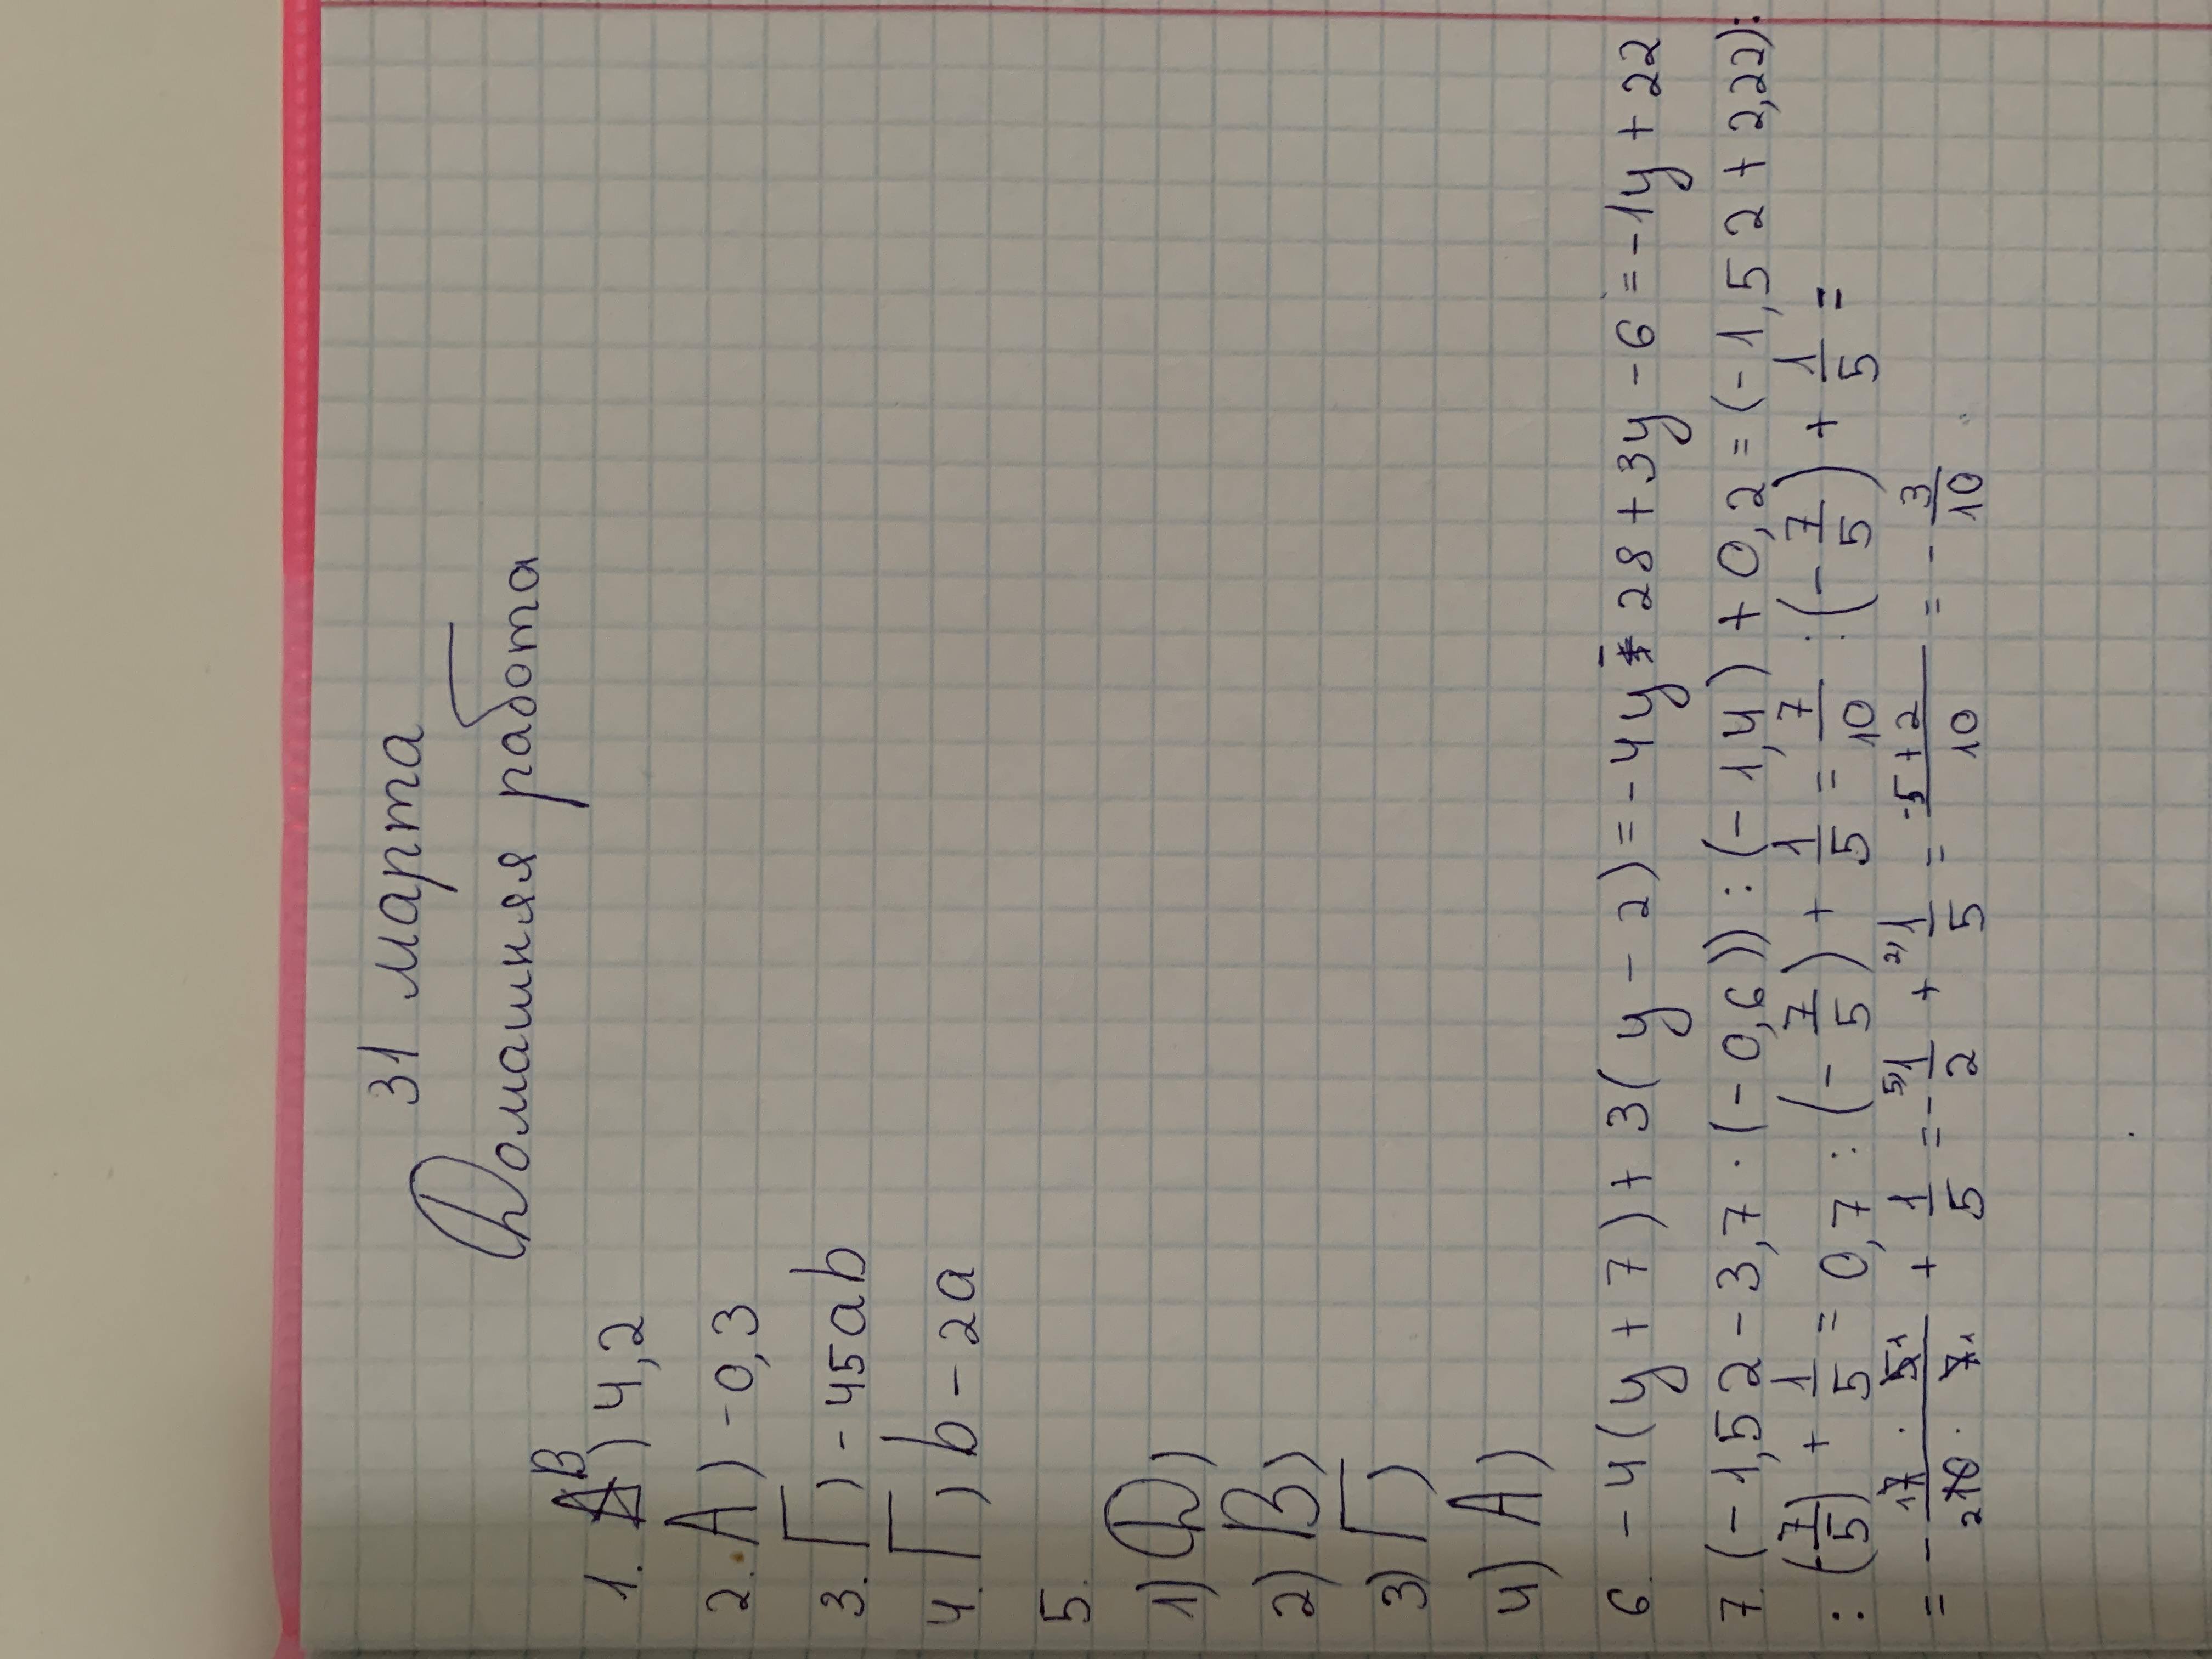 31 марта
Домашняя работа
1. В) 4,2
2. А) -0,3
3. Г) -45ab
4. Г) b-2a
5.
1) Д)
2) В)
3) Г)
4) А)
6. -4(y+7)+3(y-2)=-4y-28+3y-6=-1y+22
7. (-1,52-3,7·(-0,6)):(-1,4)+0,2=(-1,52+2,22):
:(-7/5)+1/5=0,7:(-7/5)+1/5=7/10:(-7/5)+1/5=
=-(7·5)/(10·7)+1/5=-1/2+1/5=(-5+2)/10=-3/10